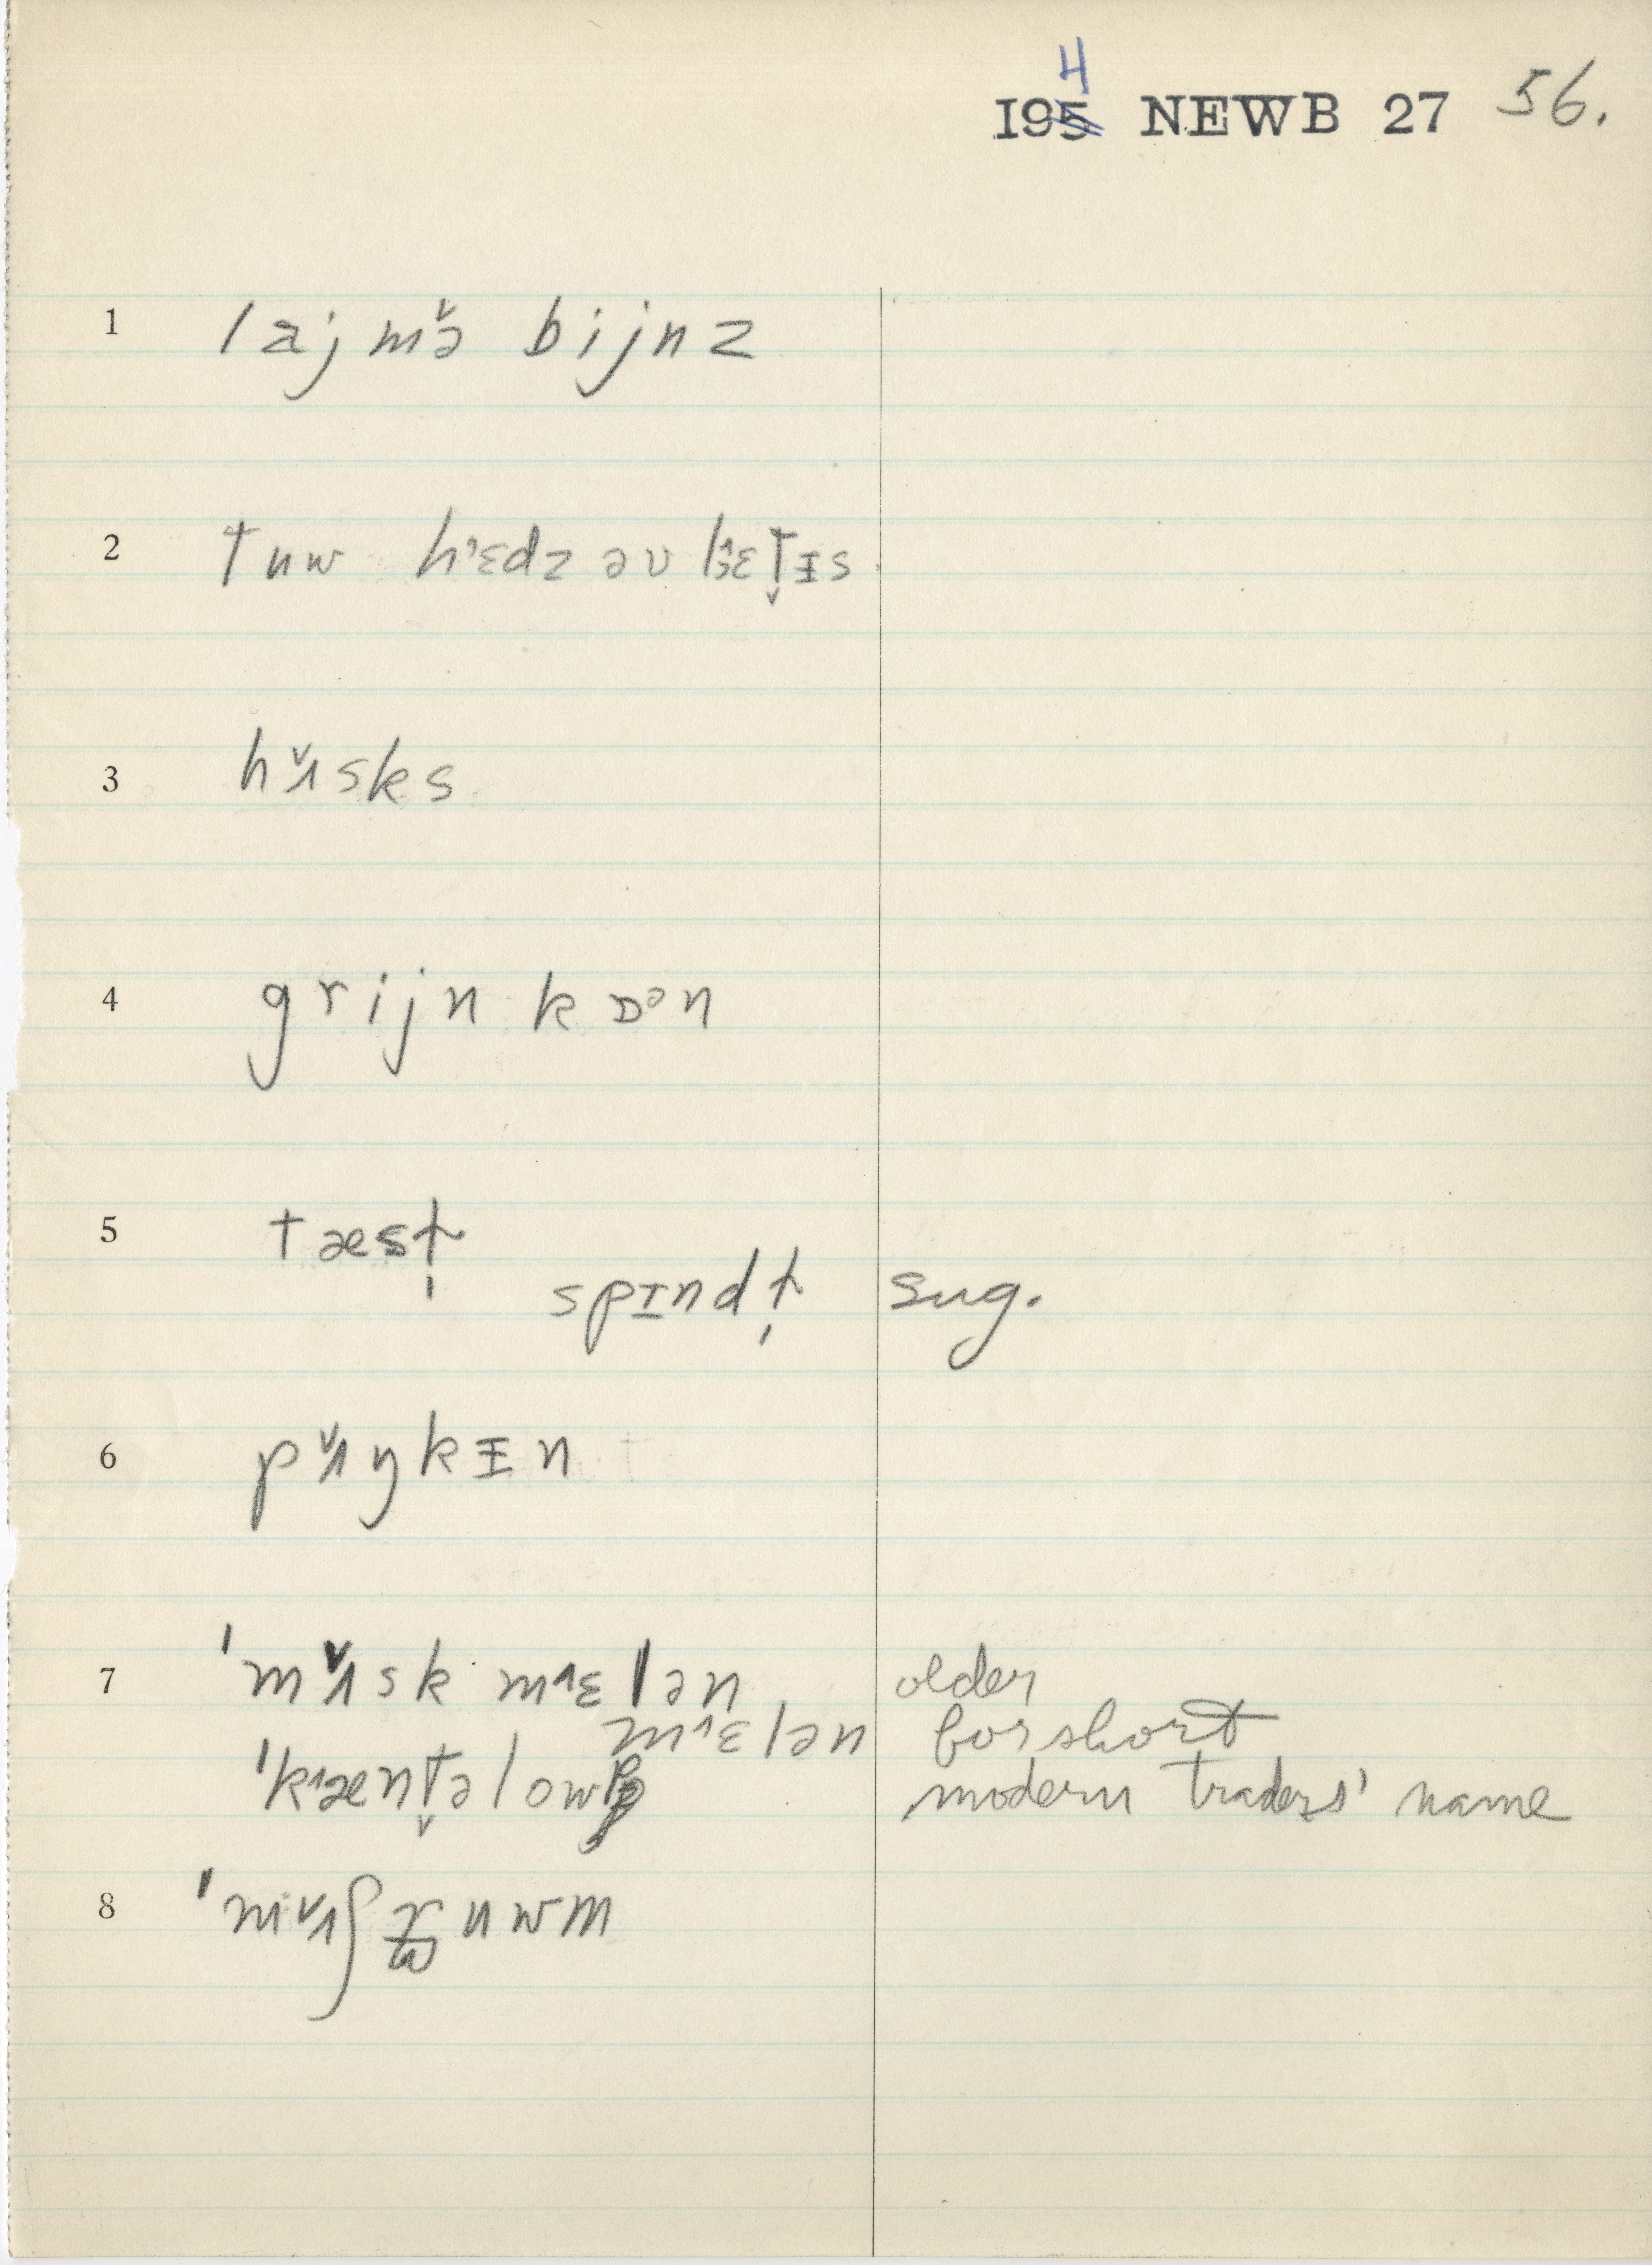 4
195 NEWB 27 56.
1 lajmə̌ bijnz
2 tuw hɛdz əv lɛt̬ᵻs
3 hʌ̌sks
4 grijn kɒᵊn
5 tæst̩
spɪndt̩ sug.
6 pʌ̌ŋkᵻn
7 ˈmʌ̌sk mɛlən older
mɛlən for short
ˈkænt̬əlowp modern traders' name
8 ˈmʌ̌ʃruwm